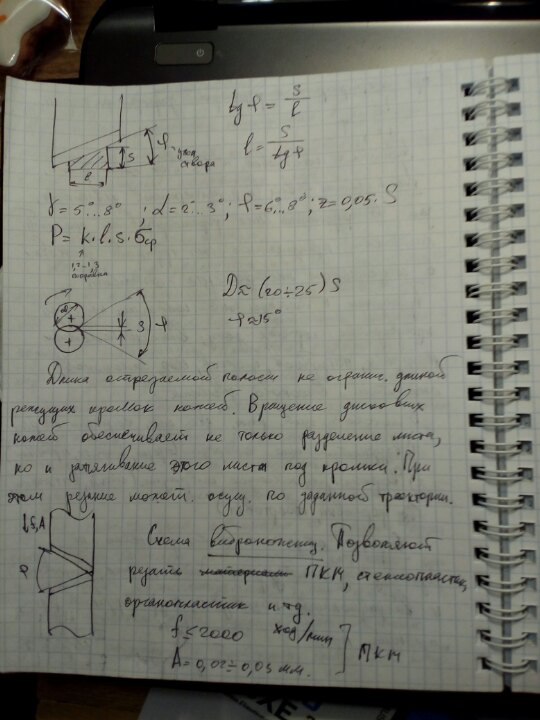 tg φ = S/l
l = S/tg φ
φ - угол
створа
S
l
γ = 5°...8° ; α = 2...3° ; φ = 6°...8° ; z = 0,05·S
P = k·l·s·σср
1,2-1,3
D ≈ (20÷25) S
φ ≈ 15°
S φ
Длина отрезаемой полосы не огранич. длиной
режущих кромок ножей. Вращение дисковых
ножей обеспечивает не только разделение листа,
но и затягивание этого листа под кромки. При
этом резание может осущ. по заданной траектории.
f, S, A
φ
Схема виброножниц. Позволяют
резать материалы ПКМ, стеклопластик,
органопластик и тд.
f ≤ 2000 ход/мин
A = 0,02÷0,03 мм.
ПКМ